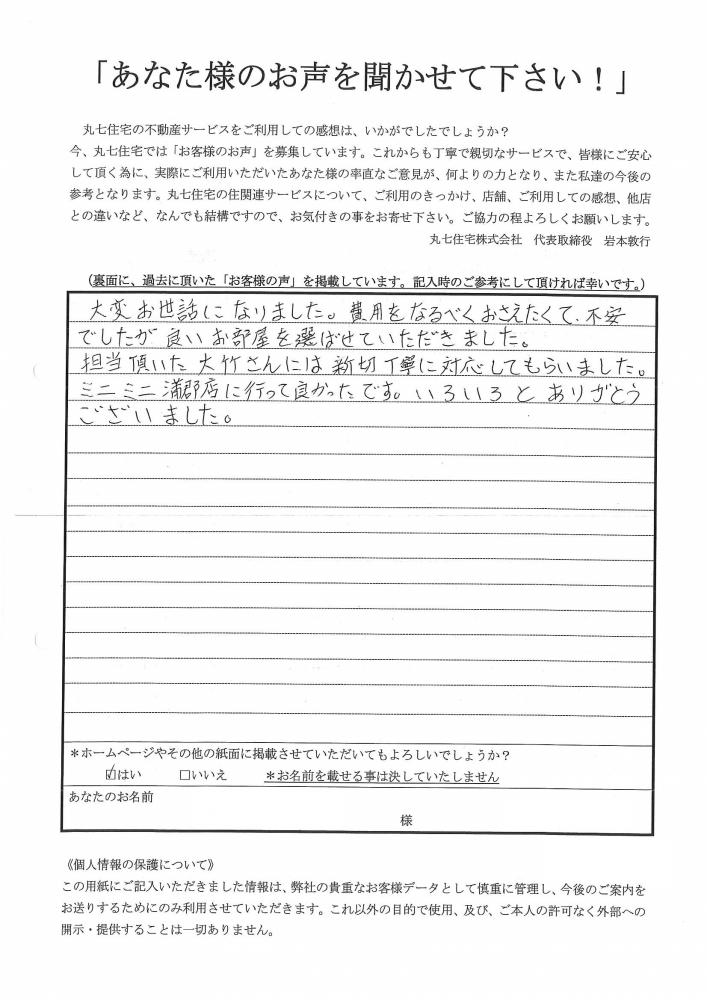 「あなた様のお声を聞かせて下さい！」
丸七住宅の不動産サービスをご利用しての感想は、いかがでしたでしょうか？
今、丸七住宅では「お客様のお声」を募集しています。これからも丁寧で親切なサービスで、皆様にご安心
して頂く為に、実際にご利用いただいたあなた様の率直なご意見が、何よりの力となり、また私達の今後の
参考となります。丸七住宅の住関連サービスについて、ご利用のきっかけ、店舗、ご利用しての感想、他店
との違いなど、なんでも結構ですので、お気付きの事をお寄せ下さい。ご協力の程よろしくお願いします。
丸七住宅株式会社　代表取締役　岩本敦行
（裏面に、過去に頂いた「お客様の声」を掲載しています。記入時のご参考にして頂ければ幸いです。）
大変お世話になりました。費用をなるべくおさえたくて、不安
でしたが良いお部屋を選ばせていただきました。
担当頂いた大竹さんには新切丁寧に対応してもらいました。
ミニミニ蒲郡店に行って良かったです。いろいろとありがとう
ございました。
＊ホームページやその他の紙面に掲載させていただいてもよろしいでしょうか？
☑はい　□いいえ　＊お名前を載せる事は決していたしません
あなたのお名前
様
《個人情報の保護について》
この用紙にご記入いただきました情報は、弊社の貴重なお客様データとして慎重に管理し、今後のご案内を
お送りするためにのみ利用させていただきます。これ以外の目的で使用、及び、ご本人の許可なく外部への
開示・提供することは一切ありません。